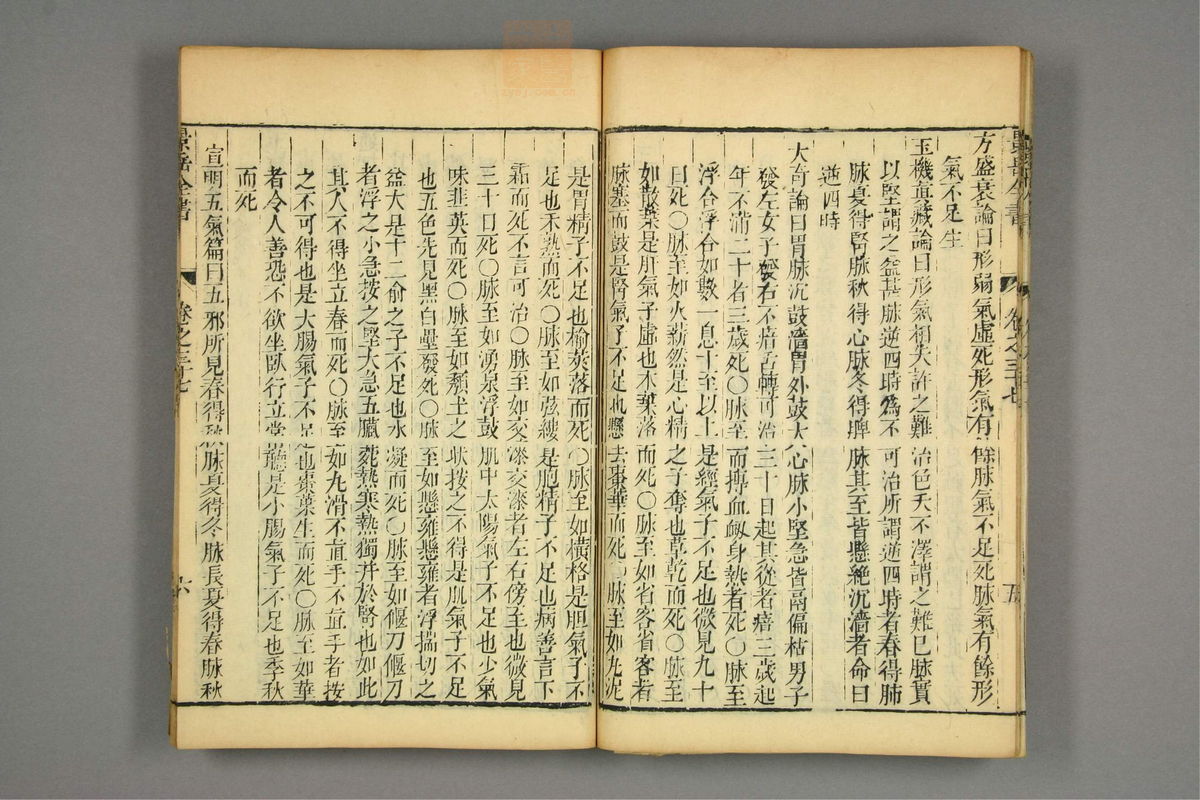 方盛衰論曰形弱氣虛死形氣有餘脉氣不足死脉氣有餘形
氣不足生
玉機真藏論曰形氣相失許之難治色夭不澤謂之難已脉實
以堅謂之益甚脉逆四時為不可治所謂逆四時者春得肺
脉夏得腎脉秋得心脉冬得脾脉其至皆懸絶沉濇者命曰
逆四時
大奇論曰胃脉沉鼓濇胃外鼓大心脉小堅急皆鬲偏枯男子
發左女子發右不瘖舌轉可治三十日起其從者瘖三歲起
年不滿二十者三歲死○脉至而搏血衄身熱者死○脉至
浮合浮合如數一息十至以上是經氣予不足也微見九十
日死○脉至如火薪然是心精之予奪也草乾而死○脉至
如散葉是肝氣予虛也木葉落而死○脉至如省客省客者
脉塞而鼓是腎氣予不足也懸去棗華而死○脉至如丸泥
是胃精予不足也榆莢落而死○脉至如橫格是胆氣予不
足也禾熟而死○脉至如弦縷是胞精予不足也病善言下
霜而死不言可治○脉至如交漆交漆者左右傍至也微見
三十日死○脉至如湧泉浮鼓肌中太陽氣予不足也少氣
味韭英而死○脉至如頽土之狀按之不得是肌氣予不足
也五色先見黑白壘發死○脉至如懸雍懸雍者浮揣切之
益大是十二俞之予不足也水凝而死○脉至如偃刀偃刀
者浮之小急按之堅大急五臟菀熱寒熱獨并於腎也如此
其人不得坐立春而死○脉至如丸滑不直手不直手者按
之不可得也是大腸氣予不足也棗葉生而死○脉至如華
者令人善恐不欲坐臥行立常聽是小腸氣予不足也季秋
而死
宣明五氣篇曰五邪所見春得秋脉夏得冬脉長夏得春脉秋
景岳全書
卷之三十七
五
景岳全書
卷之三十七
六
zysj.com.cn